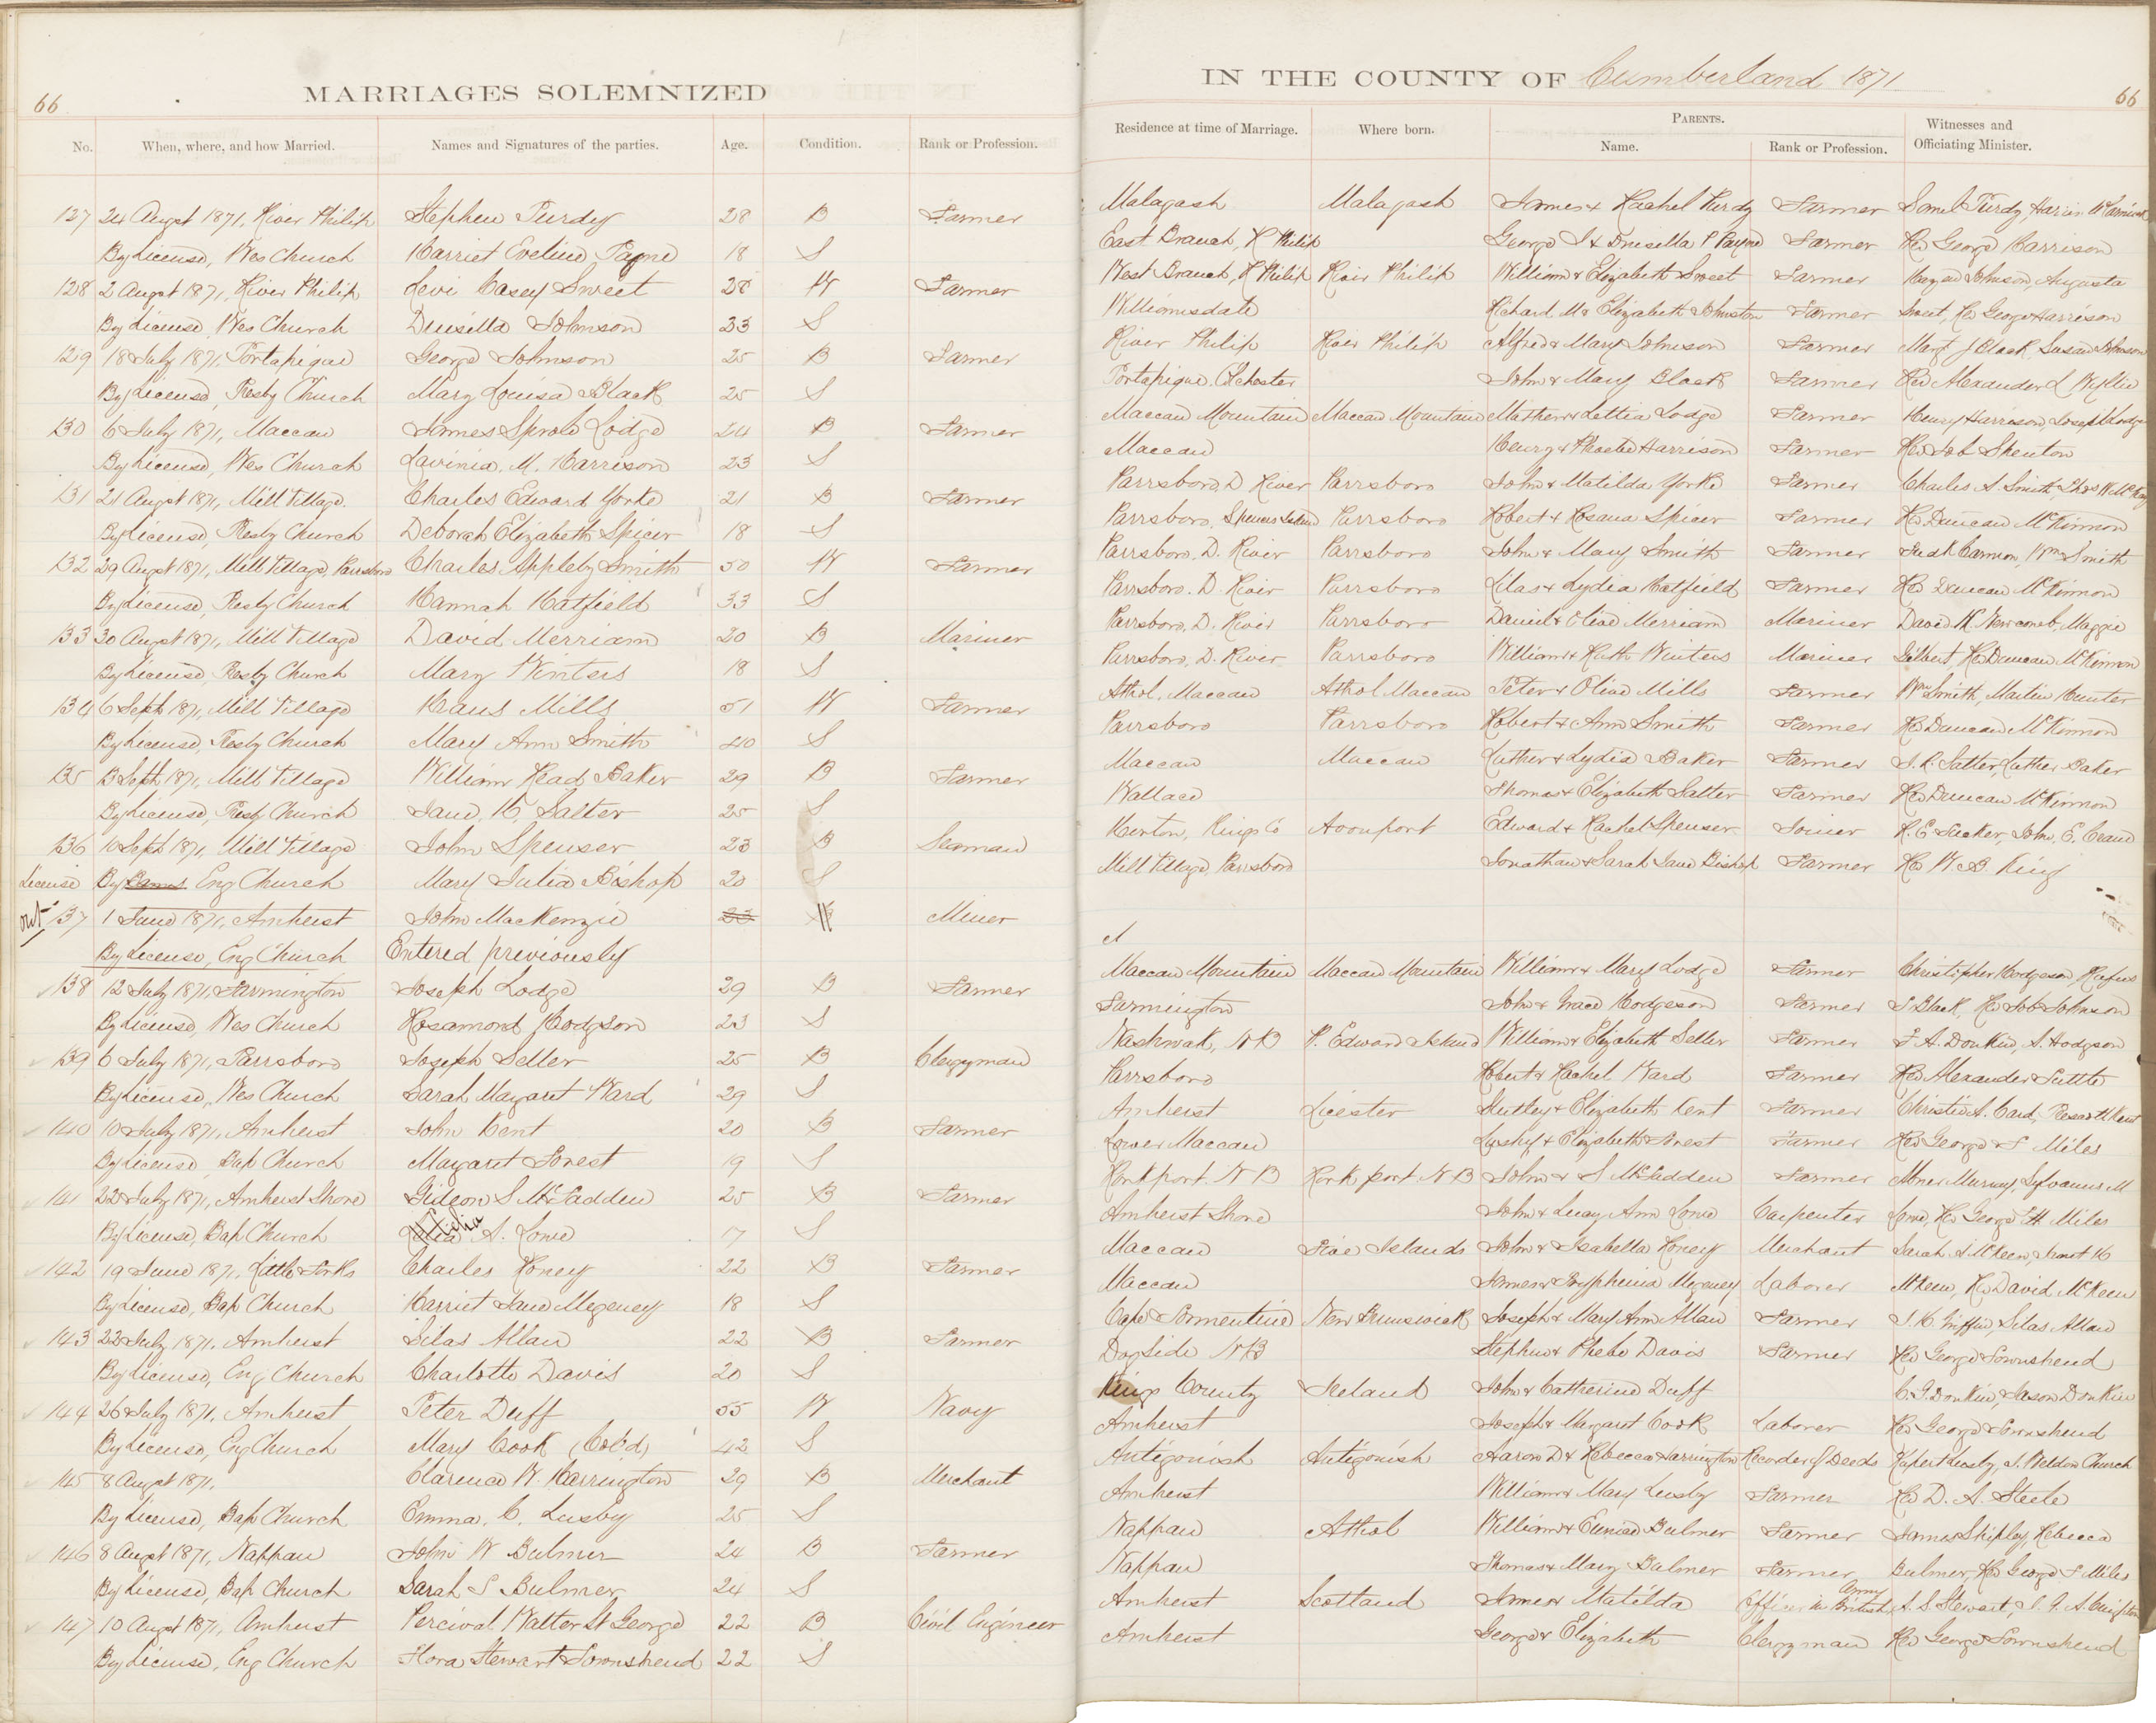 66
MARRIAGES SOLEMNIZED
No. When, where, and how Married. Names and Signatures of the parties. Age. Condition. Rank or Profession.
127 24 Augst 1871, River Philip Stephen Purdy 28 B Farmer
By License, Wes Church Harriet Eveline Payne 18 S
128 2 Augst 1871, River Philip Levi Casey Sweet 28 W Farmer
By License, Wes Church Drusilla Johnson 23 S
129 18 July 1871, Portapique George Johnson 25 B Farmer
By License, Presby Church Mary Louisa Black 25 S
130 6 July 1871, Maccan James Sprole Lodge 24 B Farmer
By License, Wes Church Lavinia. M. Harrison 23 S
131 21 Augst 1871, Mill Village. Charles Edward Yorke 21 B Farmer
By License, Presby Church Deborah Elizabeth Spicer 18 S
132 29 Augst 1871, Mill Village, Parrsboro Charles Appleby Smith 50 W Farmer
By License, Presby Church Hannah Hatfield 33 S
133 30 Augst 1871, Mill Village David Merriam 20 B Mariner
By License, Presby Church Mary Winters 18 S
134 6 Sept 1871, Mill Village Mills 51 W Farmer
By License, Presby Church Mary Ann Smith 40 S
135 13 Sept 1871, Mill Village William Head Baker 29 B Farmer
By License, Presby Church Jane. H. Salter 25 S
136 10 Sept 1871, Mill Village John Spenser 23 B Seaman
License By Banns Eng Church Mary Julia Bishop 20 S
out 137 1 June 1871, Amherst John MacKenzie 33 Miner
By License, Eng Church Entered previously
138 12 July 1871, Farmington Joseph Lodge 29 B Farmer
By License, Wes Church Rosamond Hodgson 23 S
139 6 July 1871, Parrsboro Joseph Seller 25 B Clergyman
By License, Wes Church Sarah Margaret Ward 29 S
140 10 July 1871, Amherst John Kent 20 B Farmer
By License, Bap Church Margaret Forest 19 S
141 22 July 1871, Amherst Shore Gideon S. McFadden 25 B Farmer
By License, Bap Church A. Lowe 17 S
142 19 June 1871, Little Forks Charles Roney 22 B Farmer
By License, Bap Church Harriet Jane Megeney 18 S
143 22 July 1871, Amherst Silas Allan 22 B Farmer
By License, Eng Church Charlotte Davis 20 S
144 26 July 1871, Amherst Peter Duff 55 W Navy
By License, Eng Church Mary Cook (Col'd) 42 S
145 8 Augst 1871, Clarence W. Harrington 29 B Merchant
By License, Bap Church Emma. C. Lusby 25 S
146 8 Augst 1871, Nappan John W Bulmer 24 B Farmer
By License, Bap Church Sarah S Bulmer 24 S
147 10 Augst 1871, Amherst Percival Walter St George 22 B Civil Engineer
By License, Eng Church Flora Stewart Townshend 22 S
IN THE COUNTY OF Cumberland 1871
66
Residence at time of Marriage. Where born. PARENTS. Name. Rank or Profession. Witnesses and Officiating Minister.
Malagash Malagash James & Rachel Purdy Farmer Saml Purdy,
East Branch, R Philip George S & Drusilla P Payne Farmer Rev George Harrison
West Branch, R Philip River Philip William & Elizabeth Sweet Farmer Johnson, Augusta
Williamsdale Richard M & Elizabeth Johnston Farmer Sweet, Rev George Harrison
River Philip River Philip Alfred & Mary Johnson Farmer Margt J Black, Susan Johnson
Portapique, Colchester John & Mary Black Farmer Rev Alexander L Wyllie
Maccan Mountain Maccan Mountain Mather & Lettia Lodge Farmer Henry Harrison, Joseph Lodge
Maccan Henry & Phoebe Harrison Farmer Rev Job Shenton
Parrsboro, D River Parrsboro John & Matilda Yorke Farmer Charles A. Smith, Thos W McKay
Parrsboro, Spencers Island Parrsboro Robert & Rosana Spicer Farmer Rev Duncan McKinnon
Parrsboro, D. River Parrsboro John & Mary Smith Farmer Cannon, Wm Smith
Parrsboro. D. River Parrsboro Silas & Lydia Hatfield Farmer Rev Duncan McKinnon
Parrsboro, D. River Parrsboro Daniel & Olive Merriam Mariner David M Newcomb, Maggie
Parrsboro, D. River Parrsboro William & Ruth Winters Mariner Gilbert, Rev Duncan McKinnon
Athol, Maccan Athol Maccan Peter & Olive Mills Farmer Wm Smith, Martin Hunter
Parrsboro Parrsboro Robert & Ann Smith Farmer Rev Duncan McKinnon
Maccan Maccan Luther & Lydia Baker Farmer J. R. Salter, Luther Baker
Wallace Thomas & Elizabeth Salter Farmer Rev Duncan McKinnon
Horton, Kings Co Avonport Edward & Rachel Spenser Joiner R. E. Tucker, John. E. Crane
Mill Village, Parrsboro Jonathan & Sarah Jane Bishop Farmer Rev W. B. King
A
Maccan Mountain Maccan Mountain William & Mary Lodge Farmer Christopher Hodgeson, Rufus
Farmington John & Grace Hodgeson Farmer S. Black, Rev Job Johnson
Nashwak, NB P. Edward Island William & Elizabeth Seller Farmer F A. Donkin, A. Hodgson
Parrsboro Robert & Rachel Ward Farmer Rev Alexander Tuttle
Amherst Liester & Elizabeth Kent Farmer Christie A. Card, Kent
Lower Maccan & Elizabeth Forest Farmer Rev George F Miles
Rockport. NB Rock port. NB John & S McFadden Farmer Abner Murray, Sylvanus M
Amherst Shore John & Lucay Ann Lowe Carpenter Lowe, Rev George F Miles
Maccan Islands John & Isabella Roney Merchant Sarah A McKeen, H
Maccan James & Tryphenia Megeney Laborer McKeen, Rev David McKeen
Cape Tormentine New Brunswick Joseph & Mary Ann Allan Farmer J. H. Griffin, Silas Allan
Side NB Stephen & Phebe Davis Farmer Rev George Townshend
Kings County Ireland John & Catherine Duff C. J. Donkin, Jason Donkin
Amherst Joseph & Margaret Cook Laborer Rev George Townshend
Antigonish Antigonish Aaron D & Rebecca Harrington Recorder of Deeds Rupert Lusby, J. Weldon Church
Amherst William & Mary Lusby Farmer Rev D. A. Steele
Nappan Athol William & Eunice Bulmer Farmer James Shipley, Rebecca
Nappan Thomas & Mary Bulmer Farmer Bulmer, Rev George F Miles
Amherst Scotland James & Matilda Officer in British Army A. S. Stewart,
Amherst George & Elizabeth Clergyman Rev George Townshend